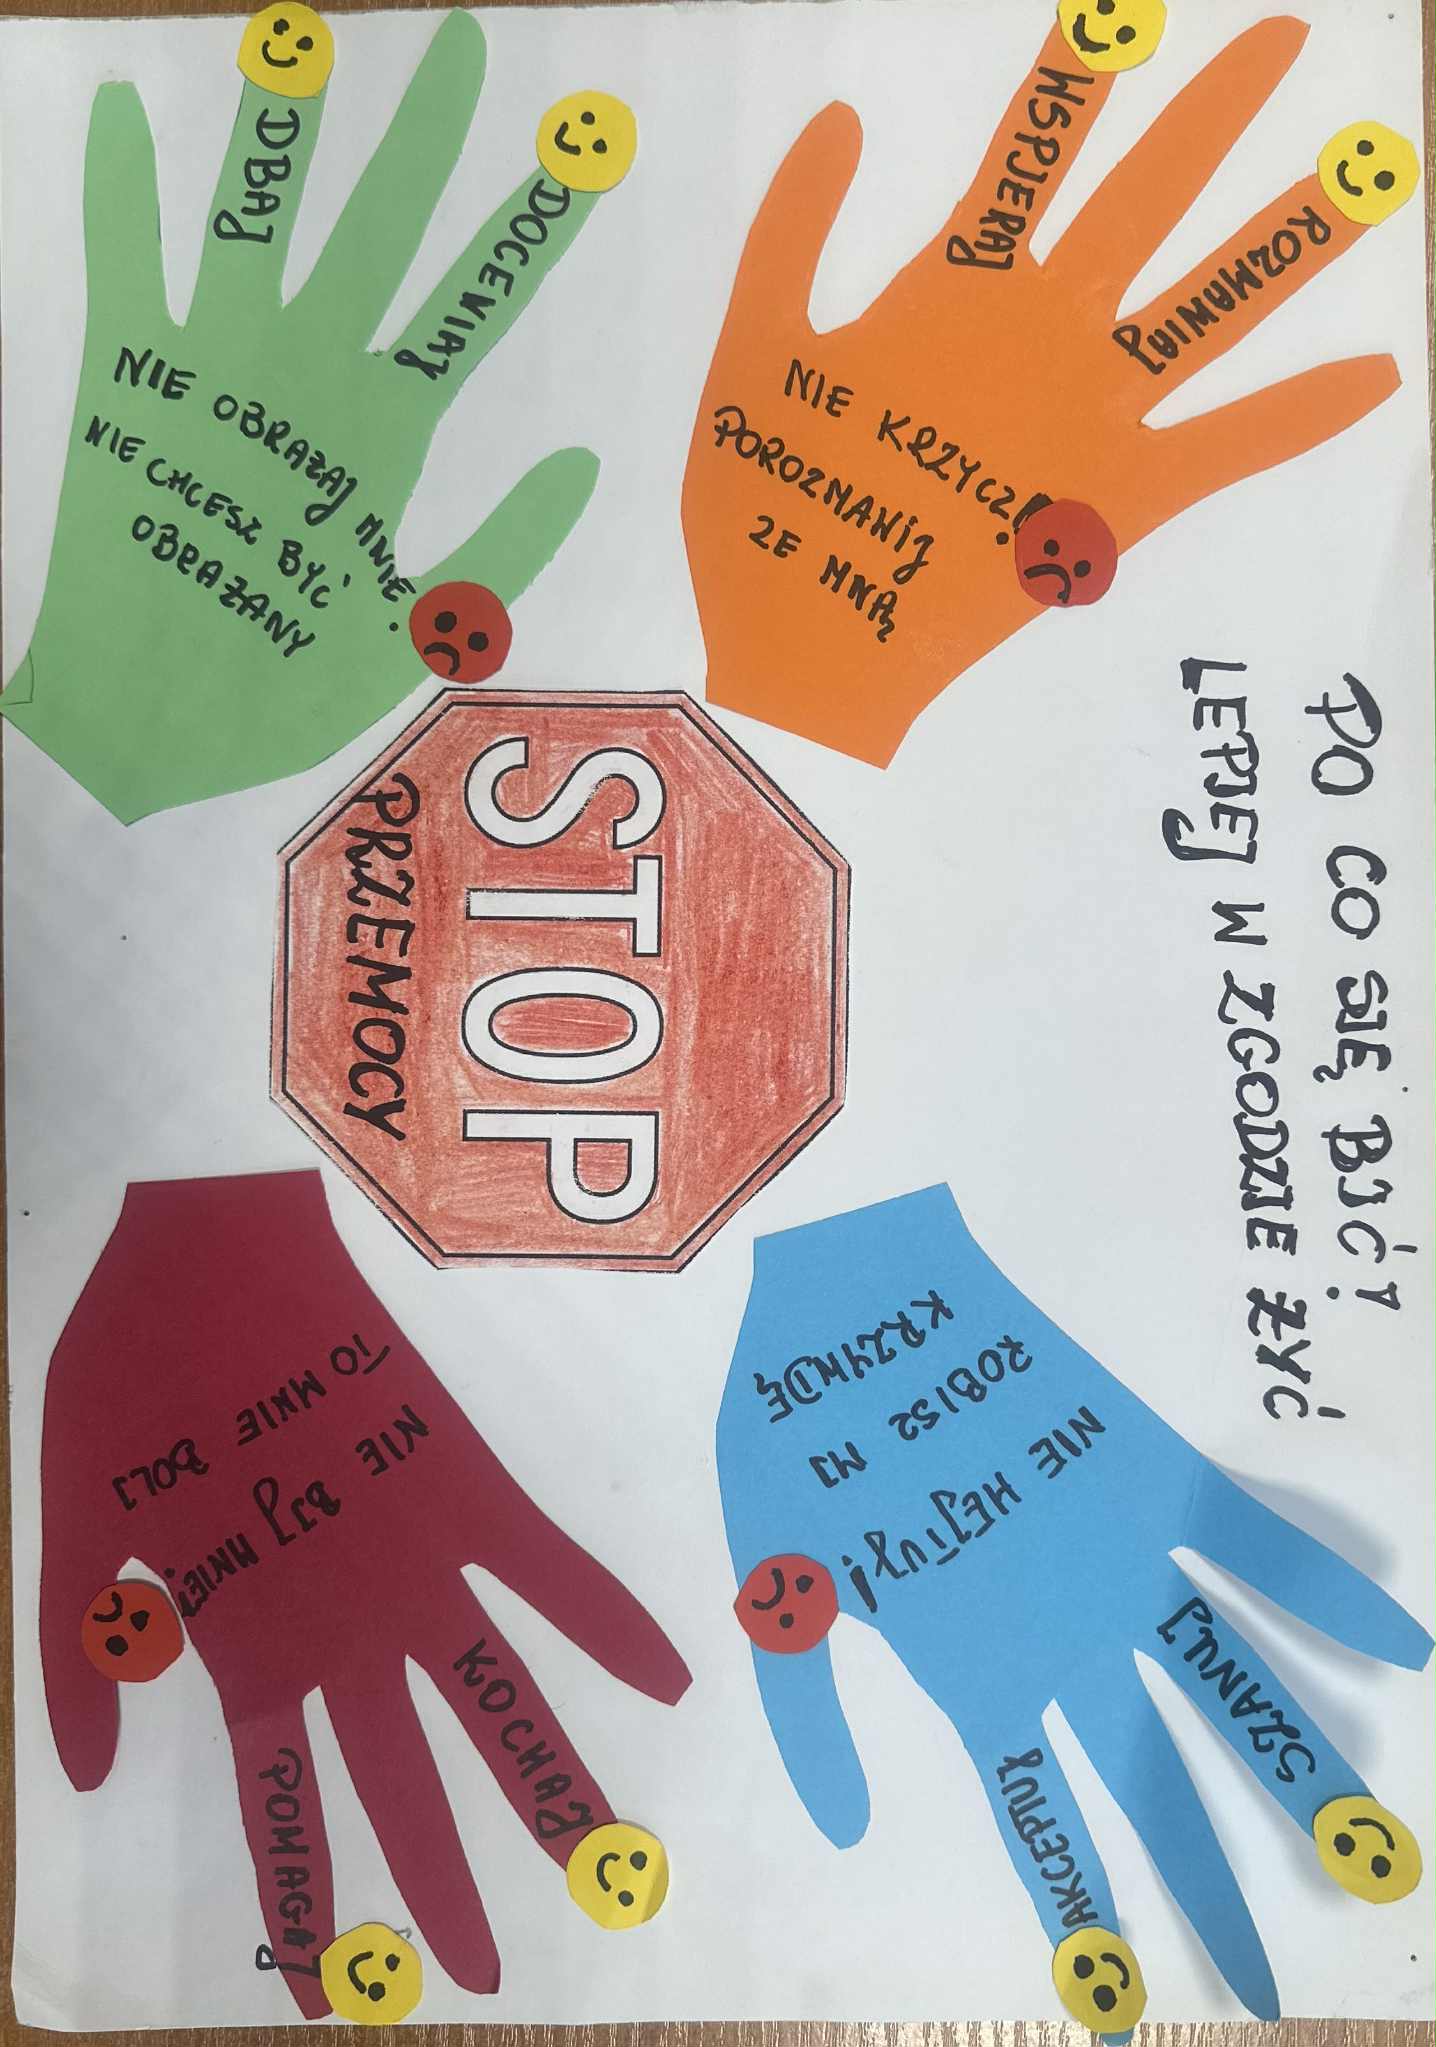 PO CO SIĘ BIĆ?
LEPIEJ W ZGODZIE ŻYĆ
WSPIERAJ
ROZMAWIAJ
NIE KRZYCZ!
POROZMAWIJ
ZE MNĄ
DBAJ
DOCENIAJ
NIE OBRAŻAJ MNIE.
NIE CHCESZ BYĆ
OBRAŻANY
STOP
PRZEMOCY
SZANUJ
AKCEPTUJ
NIE HEJTUJ!
ROBISZ MI
KRZYWDĘ
KOCHAJ
POMAGAJ
NIE BIJ MNIE!
TO MNIE BOLI